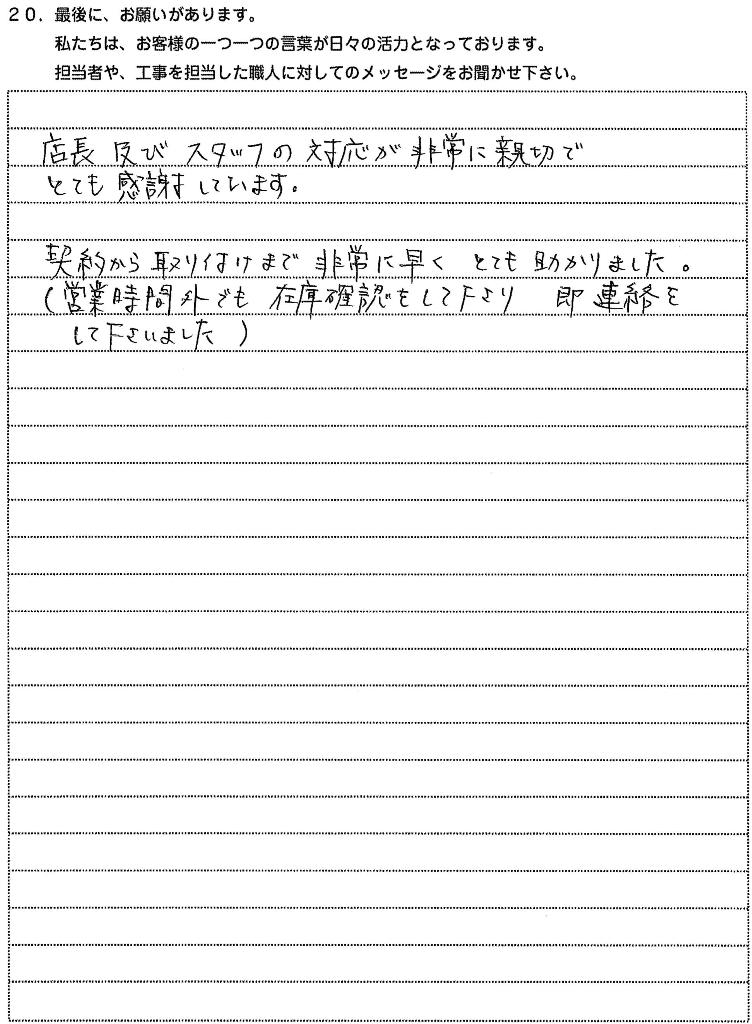 ２０．最後に、お願いがあります。
私たちは、お客様の一つ一つの言葉が日々の活力となっております。
担当者や、工事を担当した職人に対してのメッセージをお聞かせ下さい。
店長 及び スタッフの 対応が 非常に親切で
とても 感謝しています。
契約から 取り付けまで 非常に早く とても 助かりました。
(営業時間外でも 在庫確認をして下さり 即 連絡を
して下さいました)